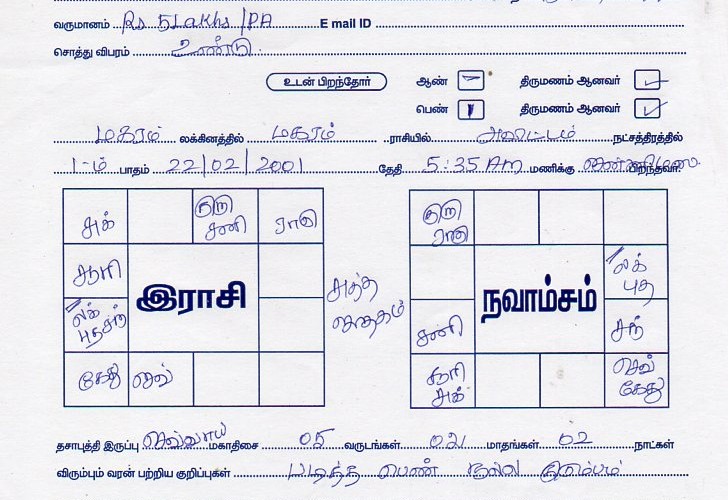 வருமானம் Rs 5 Lakhs /PA E mail ID
சொத்து விபரம் உண்டு
உடன் பிறந்தோர் ஆண் திருமணம் ஆனவர்
பெண் 1 திருமணம் ஆனவர்
மகரம் லக்கினத்தில் மகரம் ராசியில் அவிட்டம் நட்சத்திரத்தில்
1-ம் பாதம் 22/02/2001 தேதி 5:35 AM மணிக்கு பிறந்தவர்.
சுக் குரு சனி ராகு
சூரி
இராசி
லக் புத சந்
கேது செவ்
சுத்த ஜாதகம்
குரு ராகு
லக் புத
நவாம்சம்
சனி சந்
சூரி சுக் செவ் கேது
தசாபுத்தி இருப்பு செவ்வாய் மகாதிசை 05 வருடங்கள் மாதங்கள் 02 நாட்கள்
விரும்பும் வரன் பற்றிய குறிப்புகள் படித்த பெண் நல்ல குடும்பம்